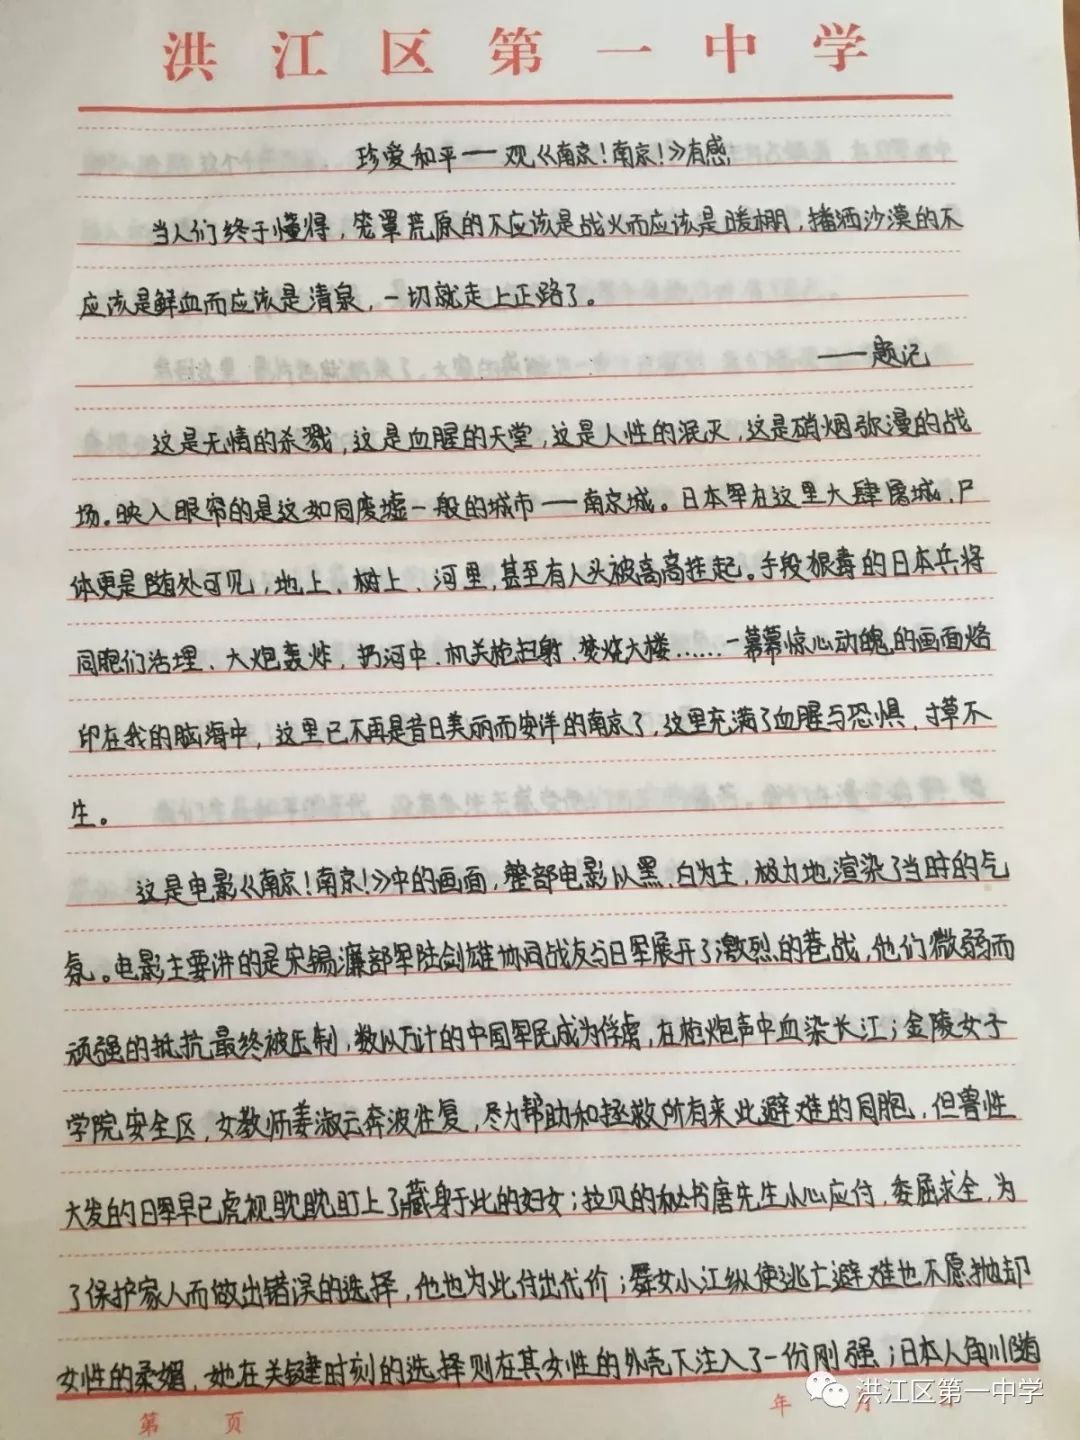 洪江区第一中学
珍爱和平——观《南京!南京!》有感
当人们终于懂得，笼罩荒原的不应该是战火而应该是暖棚，播洒沙漠的不
应该是鲜血而应该是清泉，一切就走上正路了。
——题记
这是无情的杀戮，这是血腥的天堂，这是人性的泯灭，这是硝烟弥漫的战
场。映入眼帘的是这如同废墟一般的城市——南京城。日本军在这里大肆屠城，尸
体更是随处可见，地上、树上、河里，甚至有人头被高高挂起。手段狠毒的日本兵将
同胞们活埋、大炮轰炸，扔河中、机关枪扫射、焚烧大楼……一幕幕惊心动魄的画面烙
印在我的脑海中，这里已不再是昔日美丽而安详的南京了，这里充满了血腥与恐惧，寸草不
生。
这是电影《南京!南京!》中的画面，整部电影以黑、白为主，极力地渲染了当时的气
氛。电影主要讲的是宋锡濂部军陆剑雄协同战友与日军展开了激烈的巷战，他们微弱而
顽强的抵抗最终被压制，数以万计的中国军民成为俘虏，在枪炮声中血染长江；金陵女子
学院安全区，女教师姜淑云奔波往复，尽力帮助和拯救所有来此避难的同胞，但兽性
大发的日军早已虎视眈眈盯上了藏身于此的妇女；拉贝的秘书唐先生小心应付，委屈求全，为
了保护家人而做出错误的选择，他也为此付出代价；舞女小江纵使逃亡避难也不愿抛却
女性的柔媚，她在关键时刻的选择则在其女性的外壳下注入了一份刚强；日本人角川随
第 页
年 月 日
洪江区第一中学